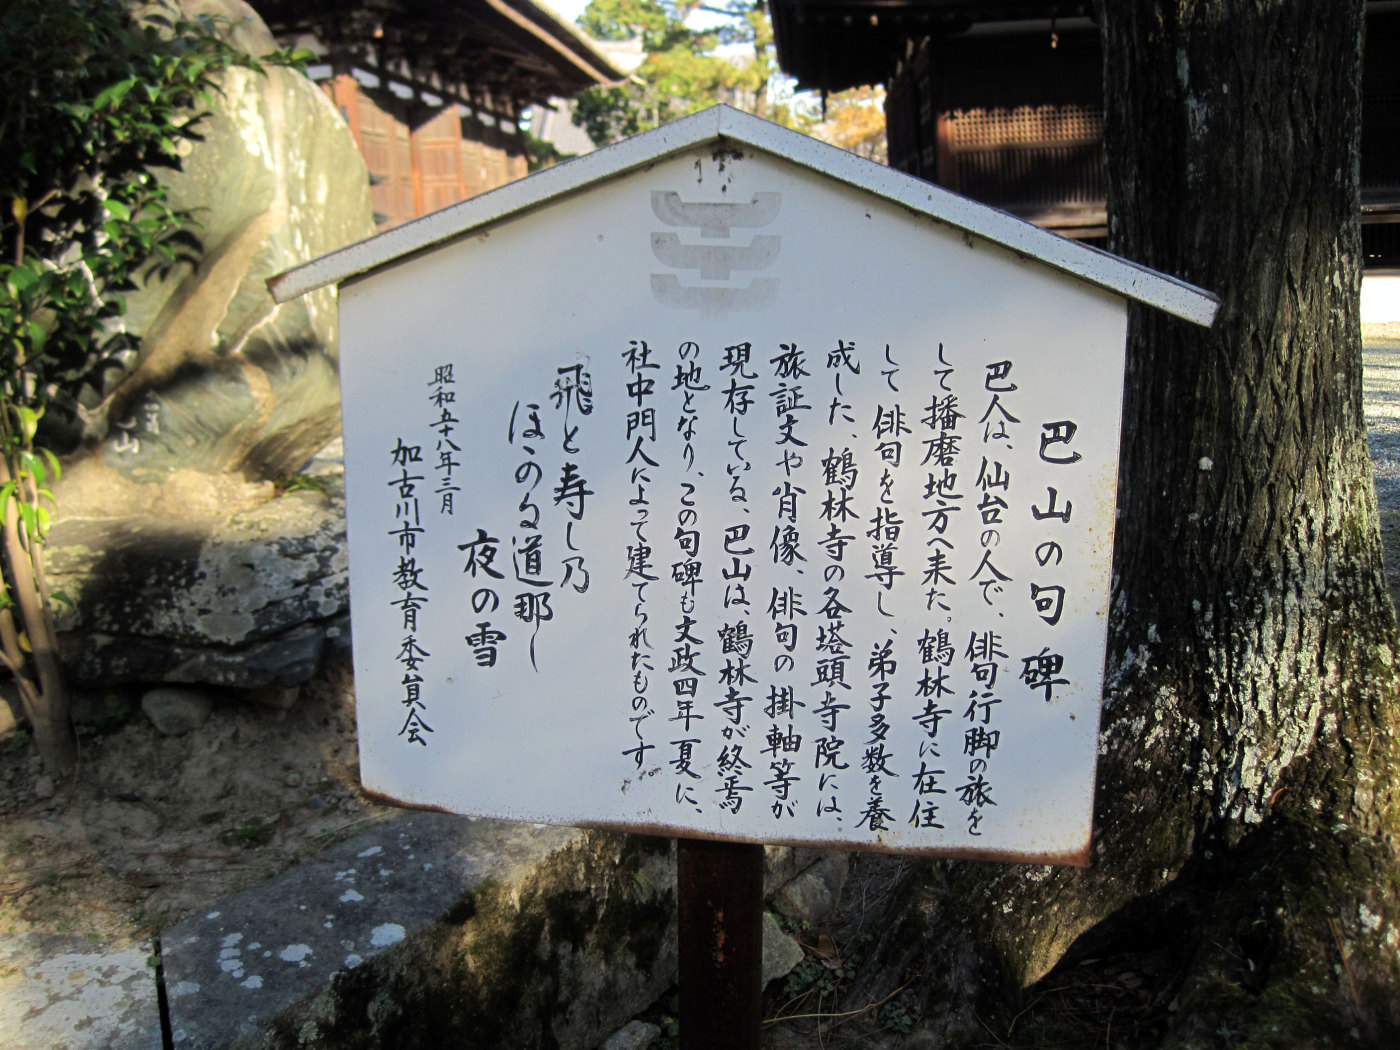 巴山の句碑
巴人は、仙台の人で、俳句行脚の旅を
して播磨地方へ来た。鶴林寺に在住
して俳句を指導し、弟子多数を養
成した、鶴林寺の各塔頭寺院には、
旅証文や肖像、俳句の掛軸等が
現存している、巴山は、鶴林寺が終焉
の地となり、この句碑も文政四年夏に、
社中門人によって建てられたものです
飛と寿し乃
ほのる道那し
夜の雪
昭和五十八年三月
加古川市教育委員会